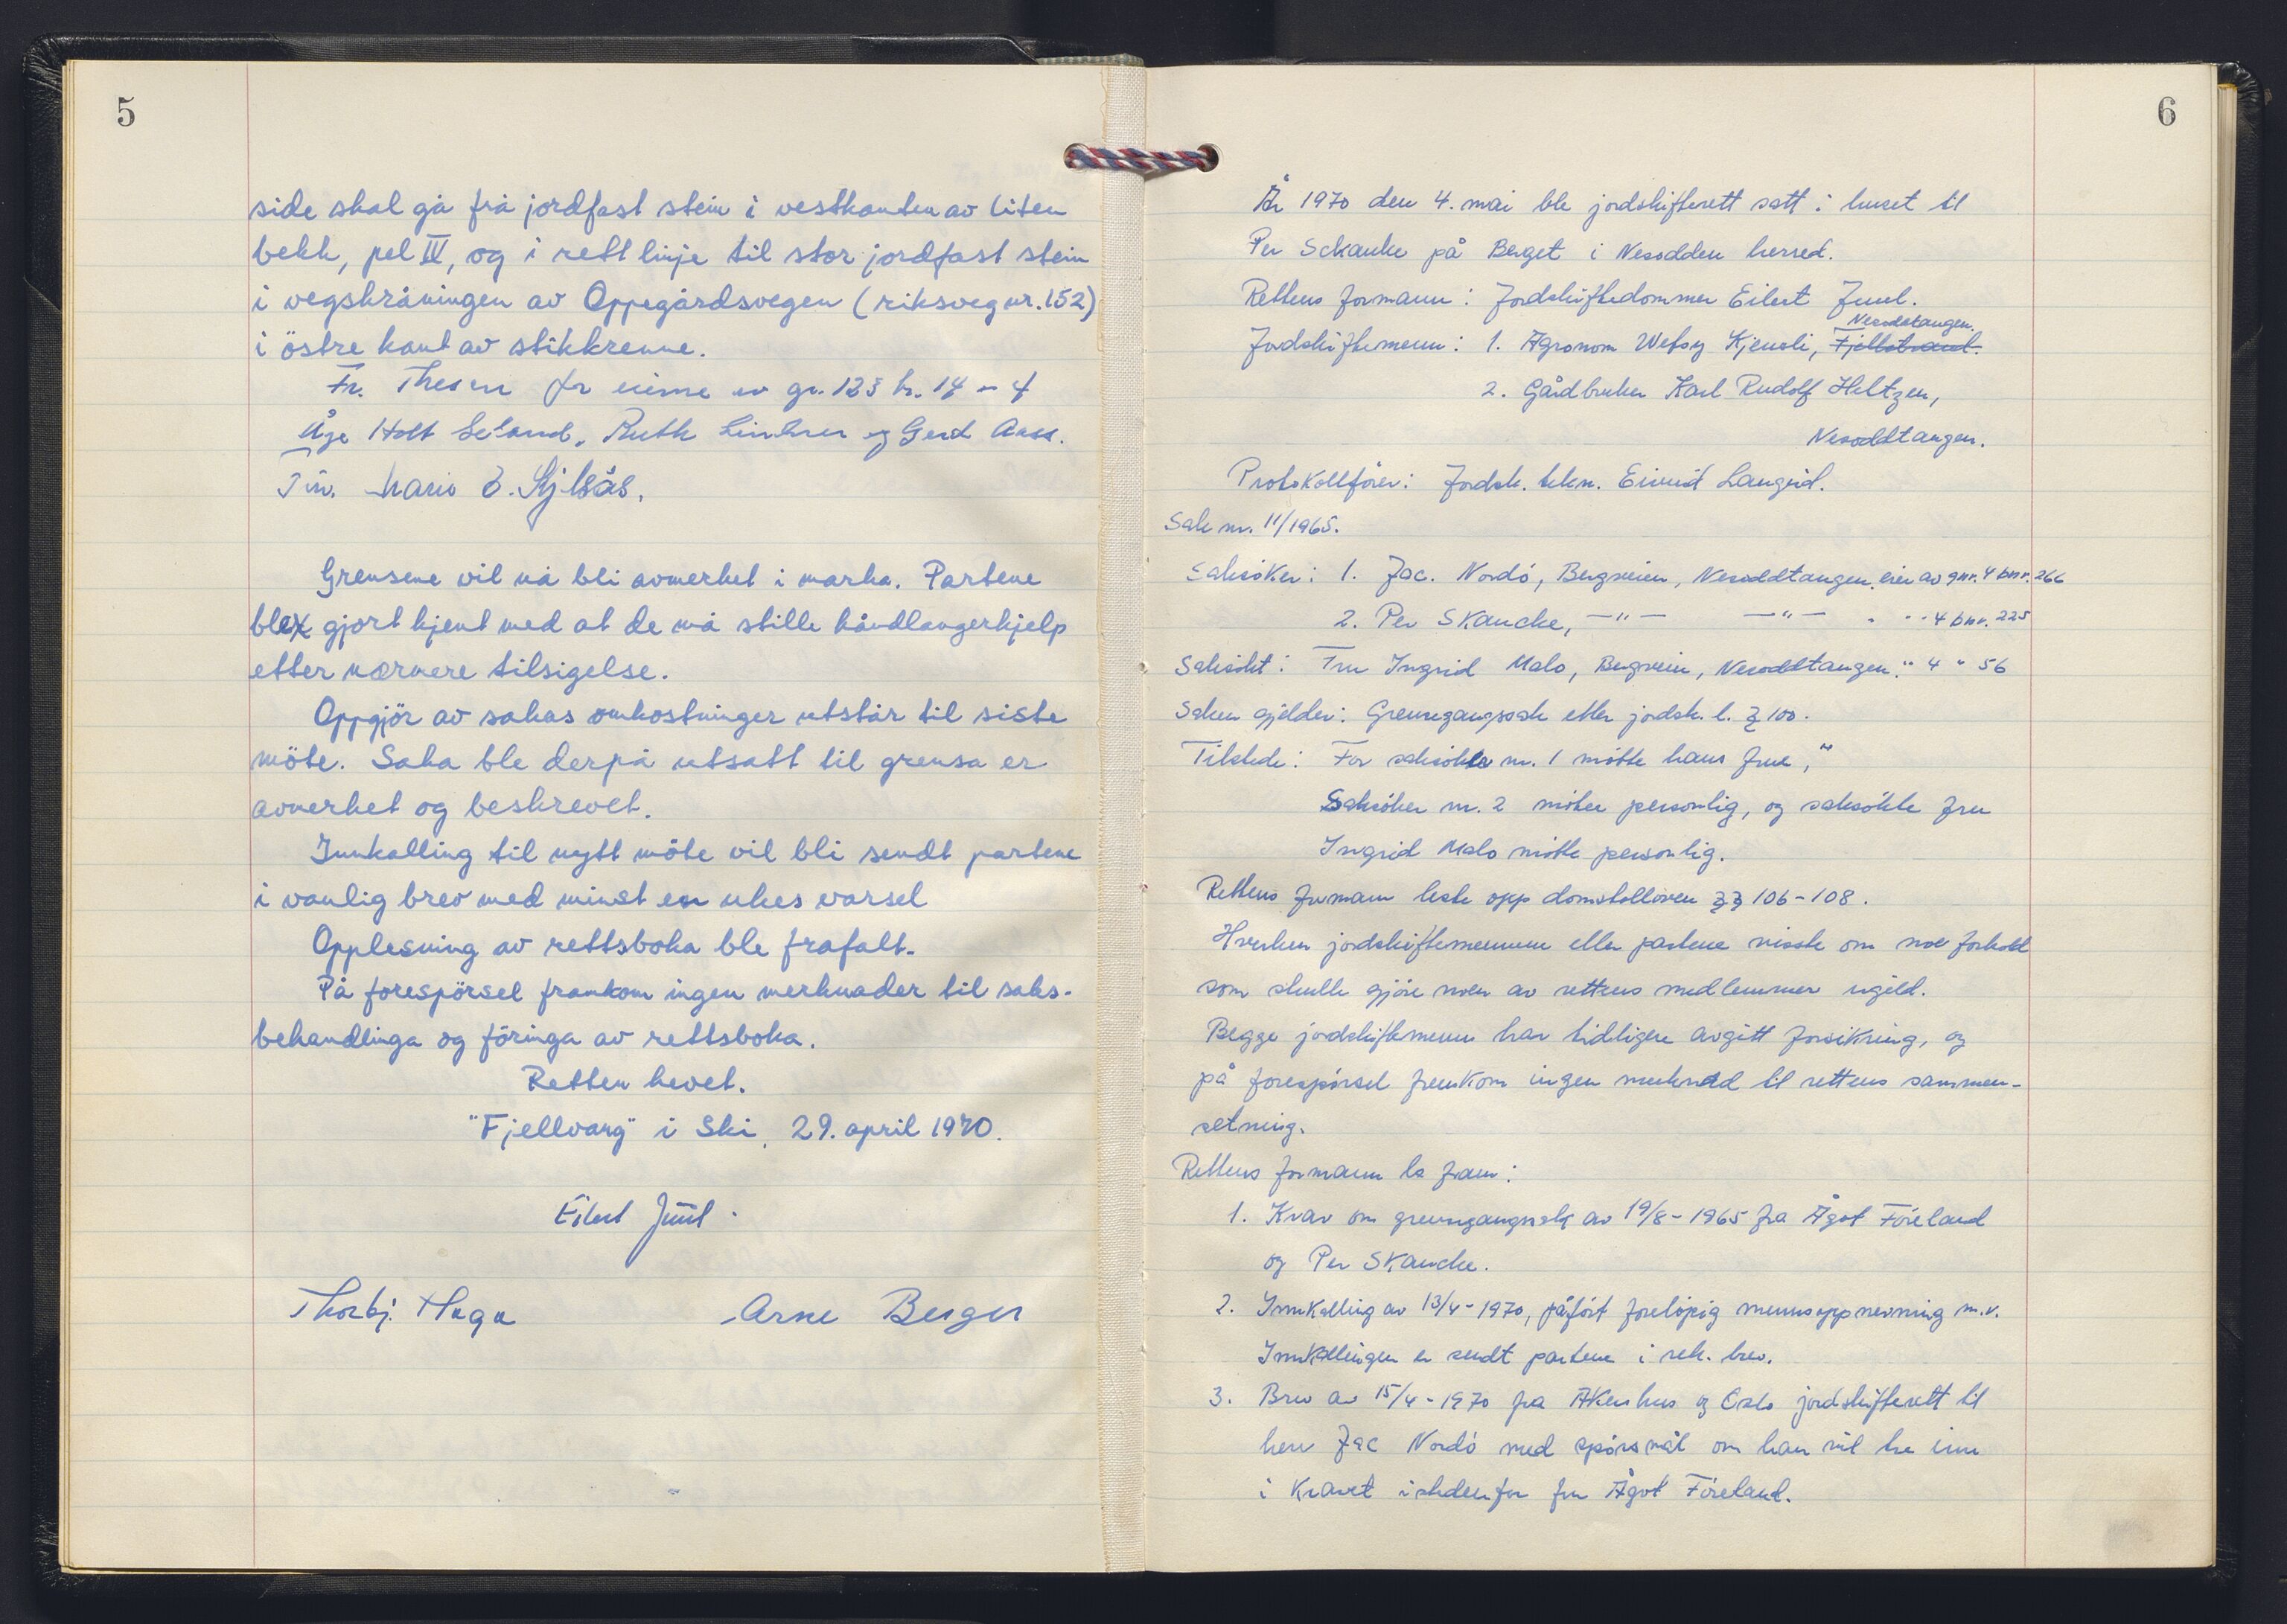 5
side skal gå frå jordfast stein i vestkanten av liten
bekk, pel IV, og i rett linje til stor jordfast stein
i vegskråningen av Oppegårdsvegen (riksveg nr. 152)
i östre kant av stikkrenne.
Fr. Thesen for eierne av gr. 123 br. 14 - 4
Åge Holt Seland, Ruth og Gerd Aass.
Mario
Grensene vil nå bli avmerket i marka. Partene
ble gjort kjent med at de må stille håndlangerhjelp
etter nærmere tilsigelse.
Oppgjör av sakas omkostninger utstår til siste
möte. Saka ble derpå utsatt til grensa er
avmerket og beskrevet.
Innkalling til nytt möte vil bli sendt partene
i vanlig brev med minst en ukes varsel
Opplesning av rettsboka ble frafalt.
På forespörsel framkom ingen merknader til saks-
behandlinga og föringa av rettsboka.
Retten hevet.
"Fjellvang" i Ski, 29. april 1970.
Eilert Juul
Thorbj. Haga Arne Berger
6
År 1970 den 4. mai ble jordskifterett satt i huset til
Per Schanke på Berget i Nesodden herred.
Rettens formann: Jordskiftedommer Eilert Juul.
Nesoddtangen.
Jordskiftemenn: 1. Agronom Kjensli, Fjellstrand.
2. Gårdbruker Karl Rudolf Heltzen,
Nesoddtangen.
Protokollförer: Jordsk. tekn. Eivind Langrid.
Sak nr. 11/1965.
Saksöker: 1. Jac. Nordö, Bergveien, Nesoddtangen, eier av gnr. 4 bnr. 266
2. Per Skancke, —"— —"— " " 4 bnr. 225
Saksökt: Fru Ingrid Malo, Bergveien, Nesoddtangen. " 4 " 56
Saken gjelder: Grensegangssak etter jordsk. l. § 100.
Tilstede: For saksöker nr. 1 mötte hans frue,
Saksöker nr. 2 möter personlig, og saksökte fru
Ingrid Malo mötte personlig.
Rettens formann leste opp domstolloven §§ 106-108.
Hverken jordskiftemennene eller partene visste om noe forhold
som skulle gjöre noen av rettens medlemmer ugild.
Begge jordskiftemenn har tidligere avgitt forsikring, og
på forespörsel fremkom ingen merknad til rettens sammen-
setning.
Rettens formann la fram:
1. Krav om grensegangssak av 19/8-1965 fra Ågot Föreland
og Per Skancke.
2. Innkalling av 13/4-1970, påfört forelöpig mennsoppnevning m.v.
Innkallingen er sendt partene i rek. brev.
3. Brev av 15/4-1970 fra Akershus og Oslo jordskifterett til
herr Jac Nordö med spörsmål om han vil tre inn
i kravet istedenfor fru Ågot Föreland.